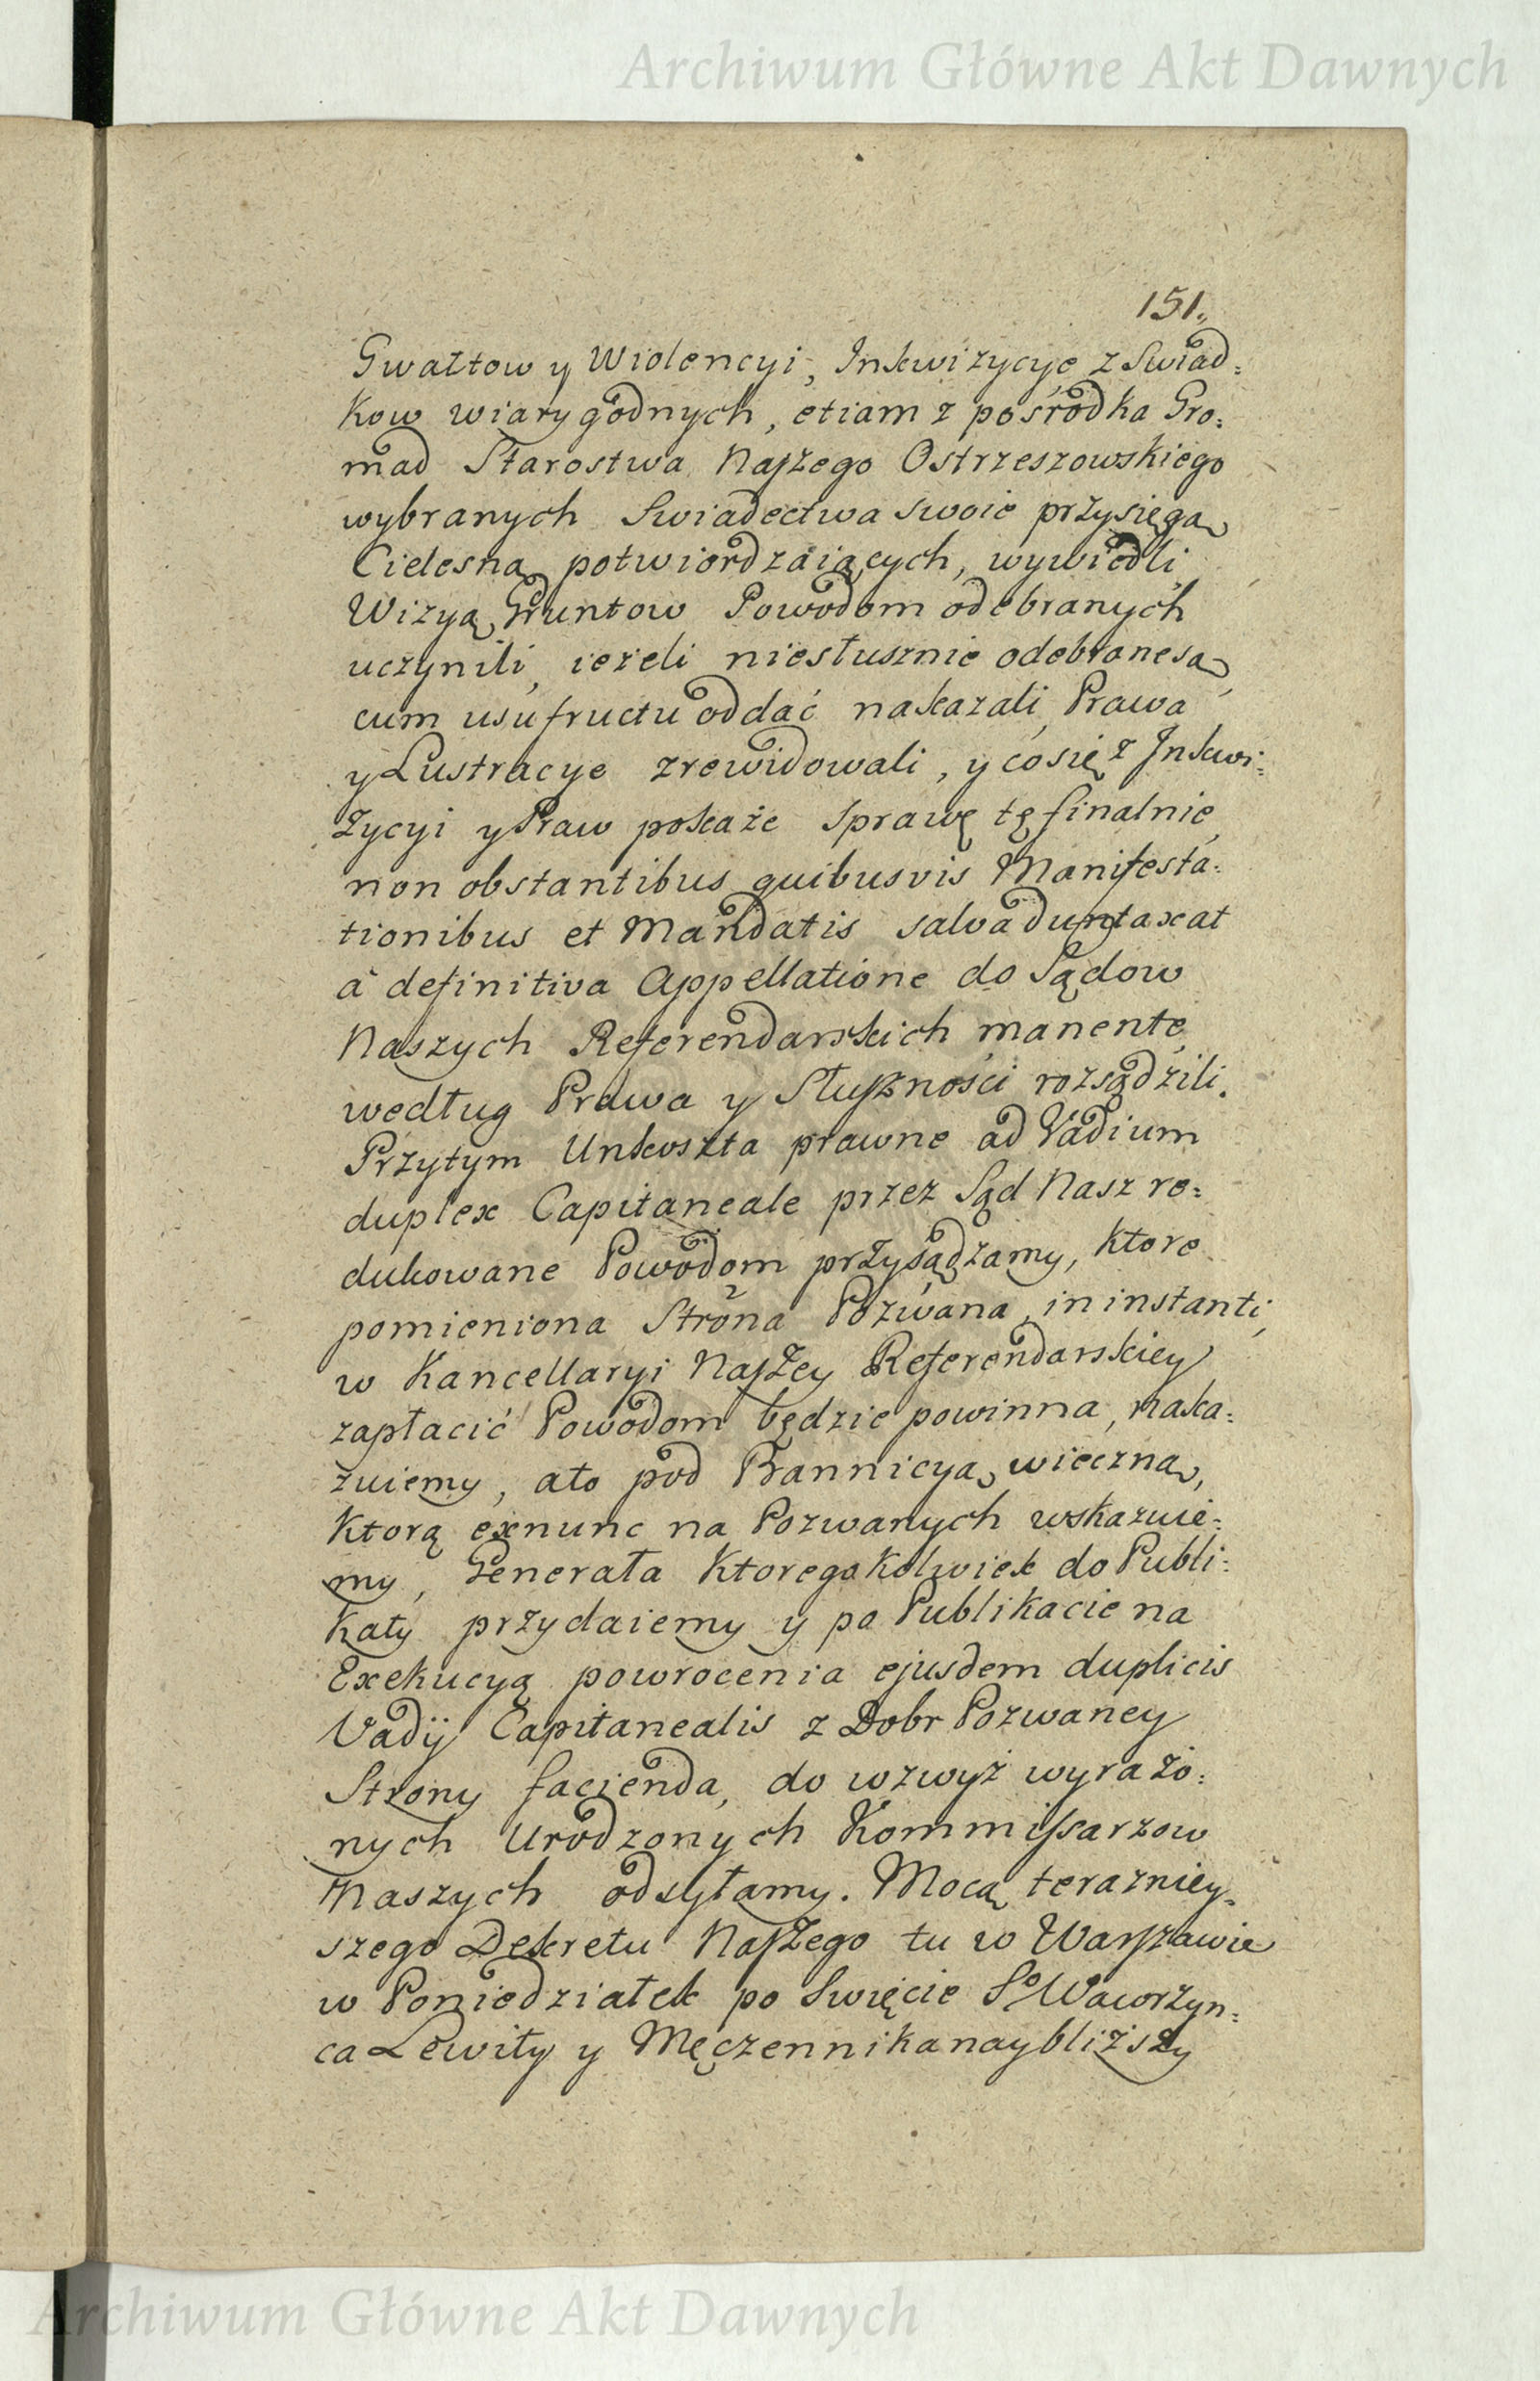 Archiwum Główne Akt Dawnych
151.
Gwałtow y Wiolencyi, Inkwizycye z Swiad=
kow wiary godnych, etiam z pośrodka Gro=
mad Starostwa Naszego Ostrzeszowskiego
wybranych Swiadectwa swoie przysięgą
Cielesną potwierdzaiących, wywiedli,
Wizyą Gruntow Powodom odebranych
uczynili, ieżeli niesłusznie odebrane są,
cum usufructu oddać nakazali, Prawa
y Lustracye zrewidowali, y co się z Inkwi=
zycyi y Praw pokaże sprawę tę finalnie,
non obstantibus quibusvis Manifesta=
tionibus et Mandatis salva duntaxat
à definitiva Appellatione do Sądow
Naszych Referendarskich manente,
według Prawa y Słuszności rozsądzili.
Przytym Unkoszta prawne ad Vadium
duplex Capitaneale przez Sąd Nasz re=
dukowane Powodom przysądzamy, ktore
pomieniona Strona Pozwana, in instanti,
w Kancellaryi Naszey Referendarskiey
zapłacić Powodom będzie powinna, naka=
zuiemy, a to pod Bannicyą wieczną,
Ktorą exnunc na Pozwanych wskazuie=
my, Generała Ktoregokolwiek do Publi=
katy przydaiemy y po Publikacie na
Exekucyą powrocenia ejusdem duplicis
Vadij Capitanealis z Dobr Pozwaney
Strony facienda, do wzwyż wyrażo=
nych Urodzonych Kommissarzow
Naszych odsyłamy. Mocą terazniey=
szego Dekretu Naszego tu w Warszawie
w Poniedziałek po Swięcie So Wawrzyn=
ca Lewity y Męczennika naybliższy
Archiwum Główne Akt Dawnych